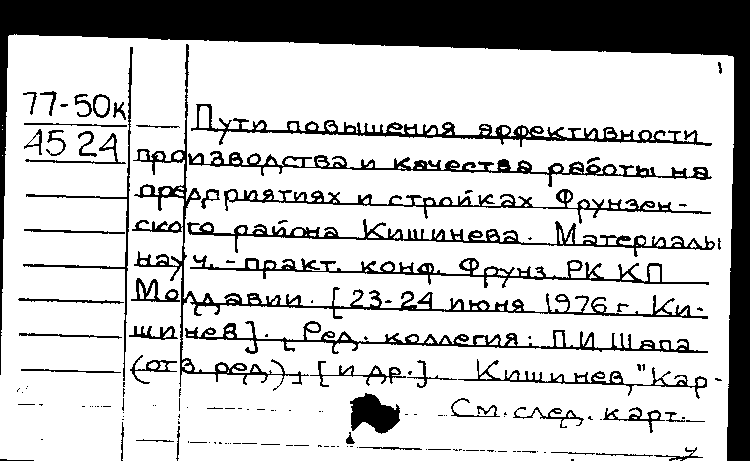 77-50к
4524
Пути повышения эффективности
производства и качества работы на
предприятиях и стройках Фрунзен-
ского района Кишинева. Материалы
науч.-практ. конф. Фрунз. РК КП
Молдавии. [23-24 июня 1976 г. Ки-
шинев]. [Ред. коллегия: П.И. Шапа
(отв. ред.)] [и др.]. Кишинев, "Кар-
См. след. карт.